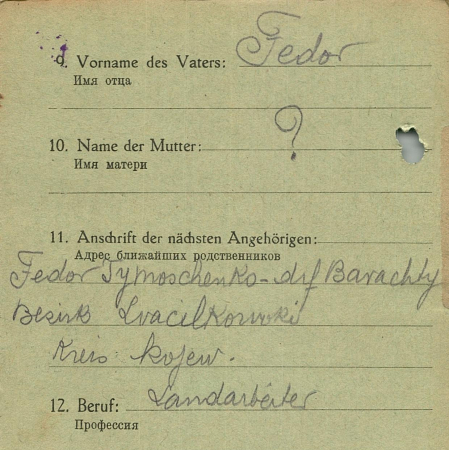 9. Vorname des Vaters: Fedor
Имя отца
10. Name der Mutter: ?
Имя матери
11. Anschrift der nächsten Angehörigen:
Адрес ближайших родственников
Fedor Tymoschenko - drf Barachty
Bezirk
Kreis: Kojew.
12. Beruf: Landarbeiter
Профессия